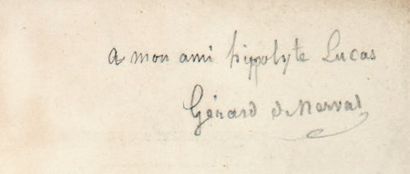 a mon ami hippolyte Lucas
Gérard de Nerval